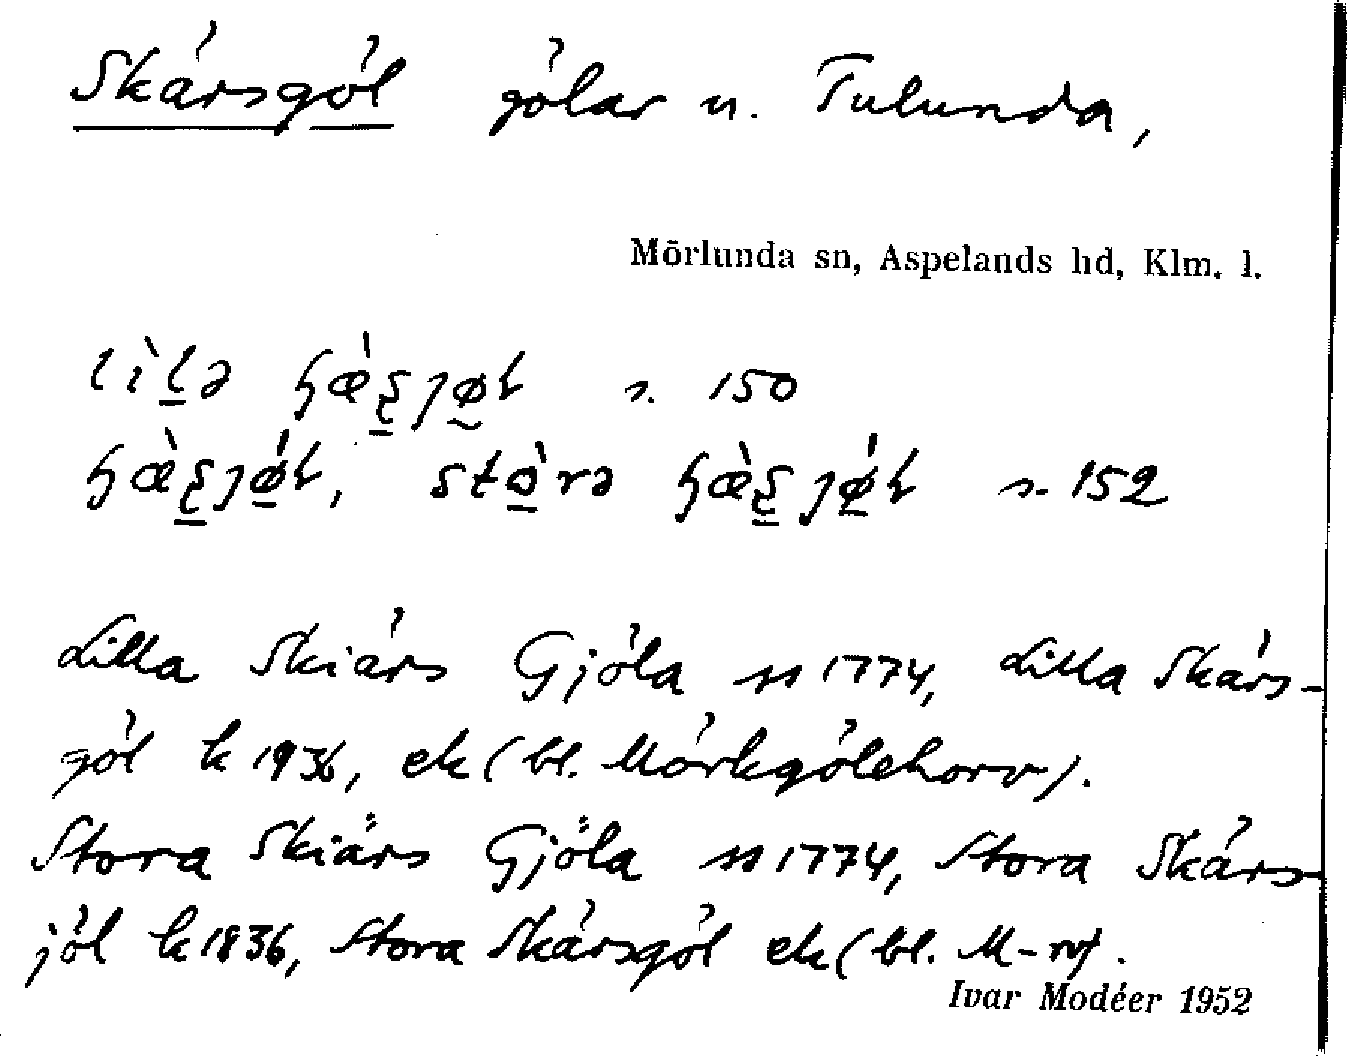 Skärsgöl gölar n. Tulunda,
Mörlunda sn, Aspelands hd, Klm. l.
s. 150
s. 152
Lilla Skiärs Gjöla 1774, Lilla Skärs-
göl k 1936, ek (bl. Mörkgölehorv).
Stora Skiärs Gjöla 1774, Stora Skärs-
jöl k 1836, Stora Skärsgöl ek (bl. M-rv).
Ivar Modéer 1952